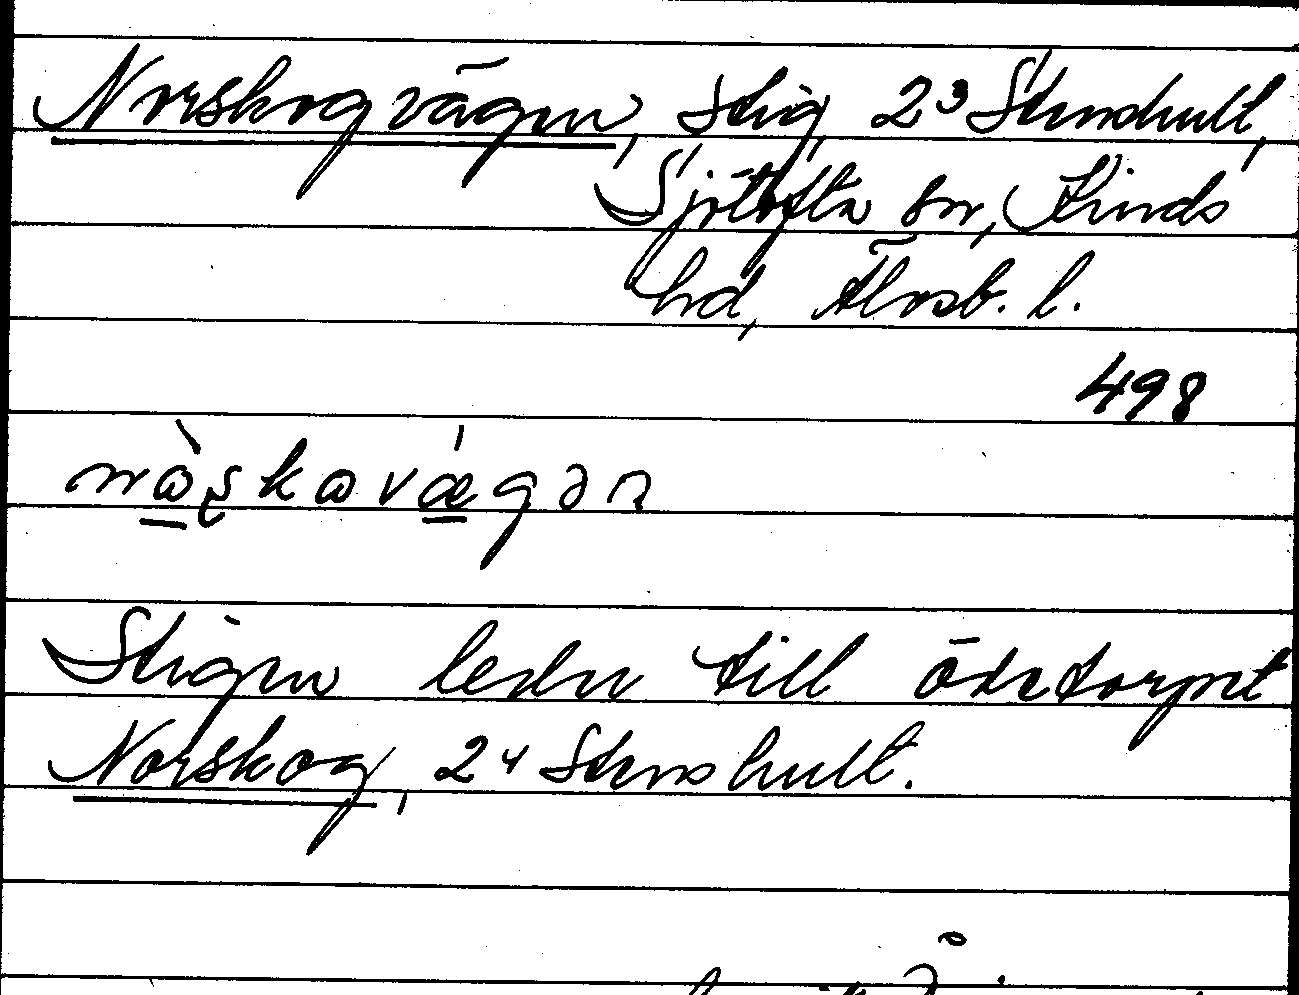 Norskogvägen, stig, 2³ Stenshult,
Sjötofta sn, Kinds
hd, Älvsb. l.
498
Stigen leder till ödetorpet
Norskog, 2⁴ Stenshult.